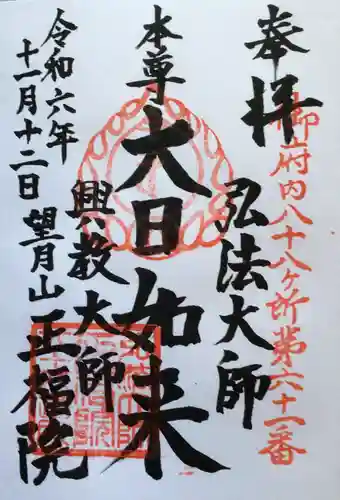 奉拝
御府内八十八ヶ所第六十一番
弘法大師
本尊
大日如来
興教大師
令和六年
十一月十二日
望月山
正福院